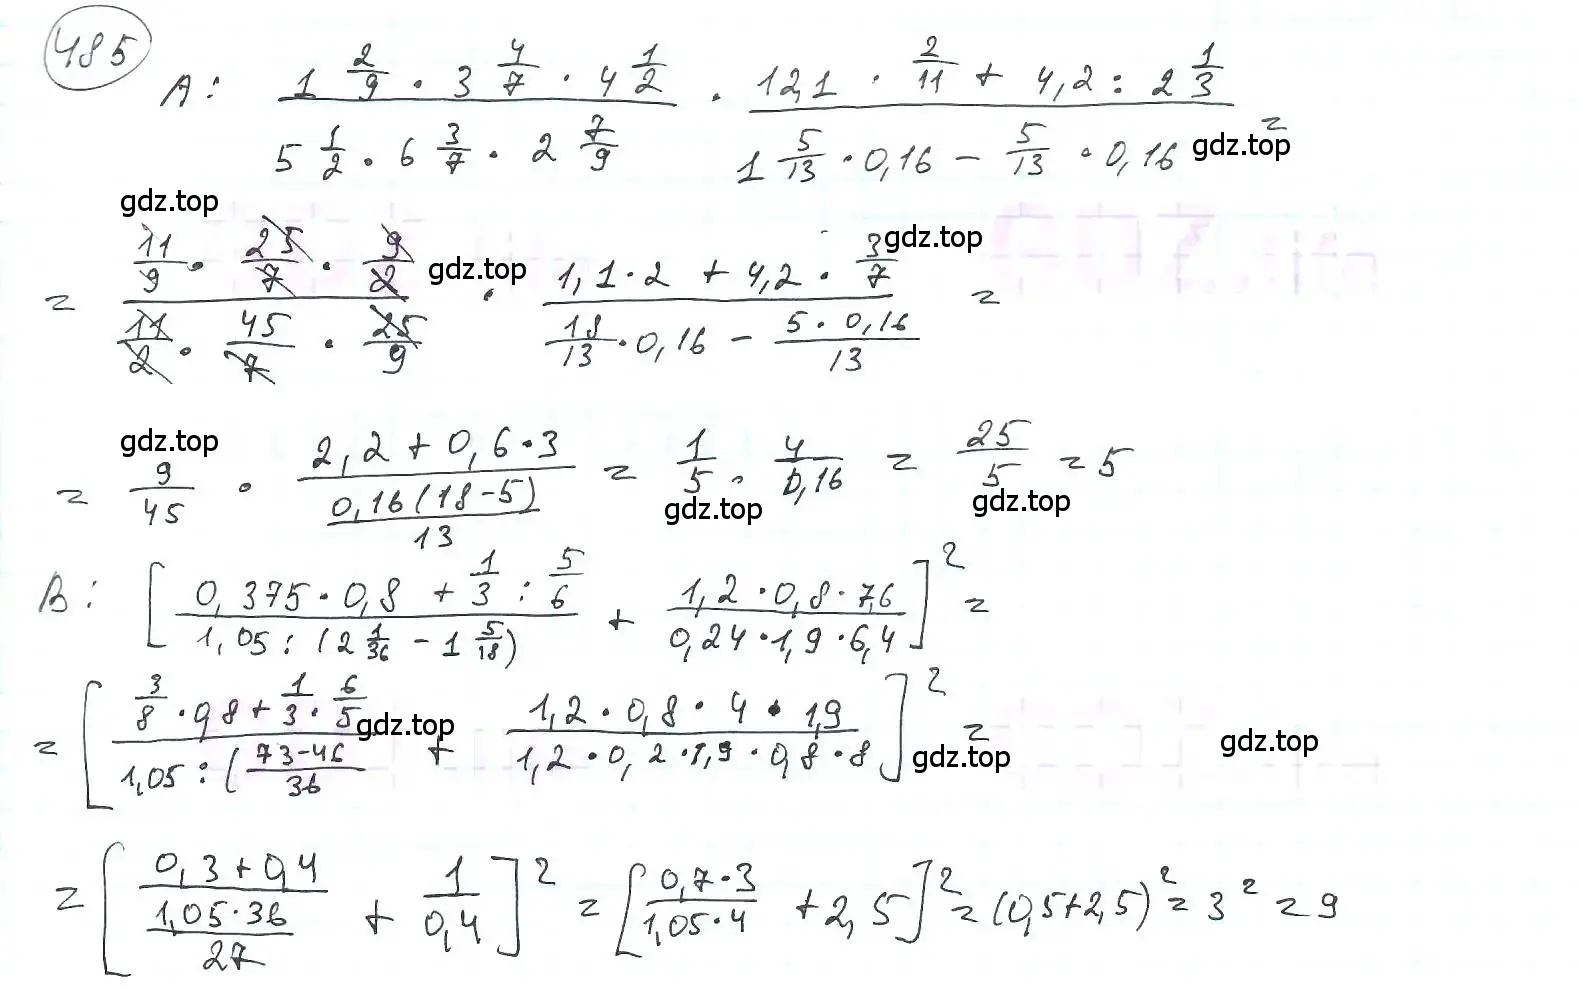 485
A: (1 2/9 · 3 4/7 · 4 1/2) / (5 1/2 · 6 3/7 · 2 7/9) · (12,1 · 2/11 + 4,2 : 2 1/3) / (1 5/13 · 0,16 − 5/13 · 0,16) =
gdz.top
gdz.top
= (11/9 · 25/7 · 9/2) / (11/2 · 45/7 · 25/9) · (1,1 · 2 + 4,2 · 3/7) / (18/13 · 0,16 − (5 · 0,16)/13) =
gdz.top
gdz.top
= 9/45 · (2,2 + 0,6 · 3) / (0,16(18−5)/13) = 1/5 · 4/0,16 = 25/5 = 5
gdz.top
gdz.top
gdz.top
B: [(0,375 · 0,8 + 1/3 : 5/6) / (1,05 : (2 1/36 − 1 5/18)) + (1,2 · 0,8 · 7,6) / (0,24 · 1,9 · 6,4)]² =
= [(3/8 · 0,8 + 1/3 · 6/5) / (1,05 : ((73−46)/36) + (1,2 · 0,8 · 4 · 1,9) / (1,2 · 0,2 · 1,9 · 0,8 · 8)]² =
gdz.top
gdz.top
gdz.top
= [(0,3 + 0,4) / (1,05 · 36/27) + 1/0,4]² = [(0,7 · 3)/(1,05 · 4) + 2,5]² = (0,5+2,5)² = 3² = 9